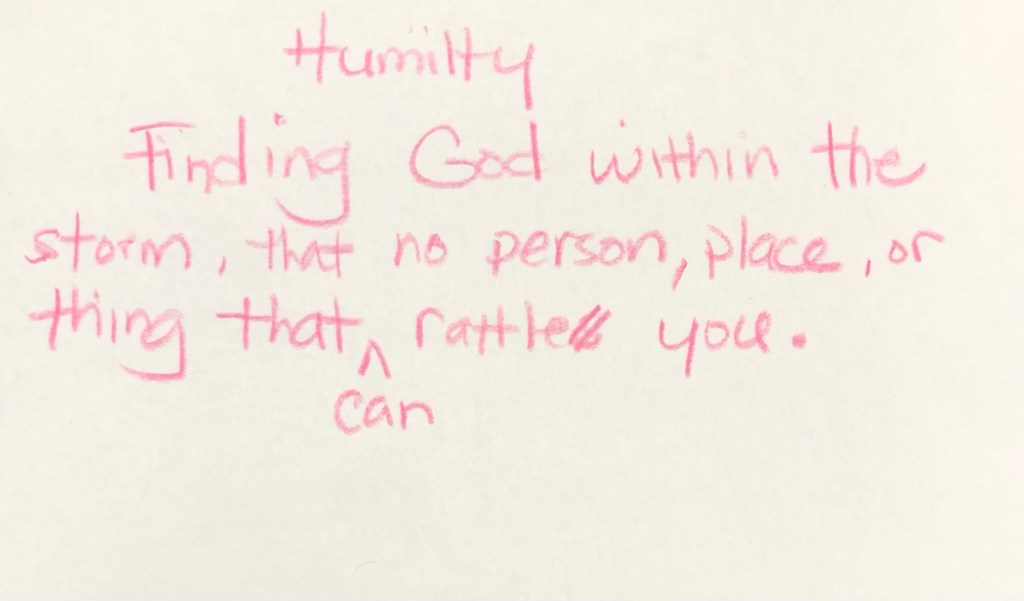 Humilty
Finding God within the
storm, that no person, place, or
thing that ^ rattle you.
can